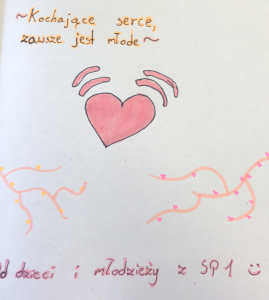 ~Kochające serce,
zawsze jest młode~
d dzieci i młodzieży z SP1 ☺